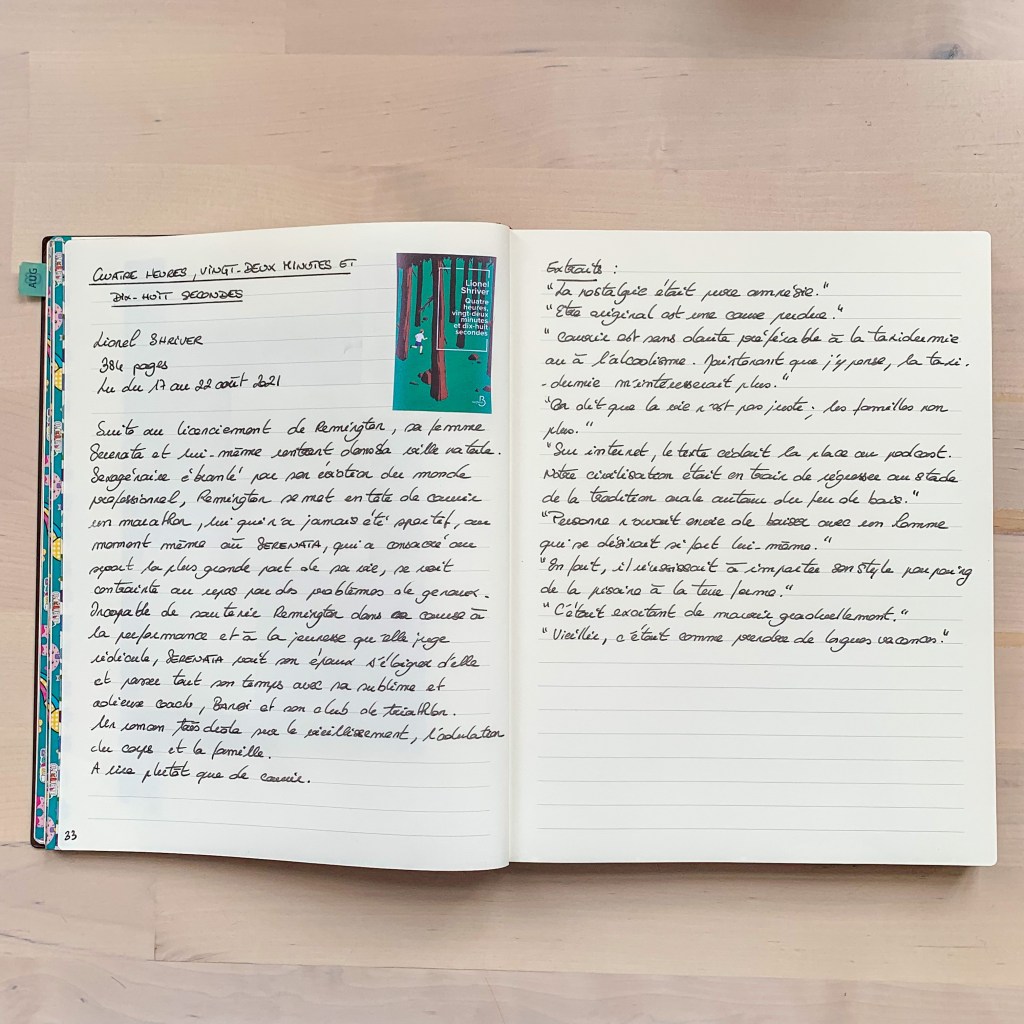 AUG
QUATRE HEURES, VINGT-DEUX MINUTES ET
DIX-HUIT SECONDES
Lionel SHRIVER
384 pages
Lu du 17 au 22 août 2021
Lionel
Shriver
Quatre
heures,
vingt-deux
minutes
et dix-huit
secondes
Suite au licenciement de Remington, sa femme
Serenata et lui-même rentrent dans sa ville natale.
Sexagénaire ébranlé par son éviction du monde
professionnel, Remington se met en tête de courir
un marathon, lui qui n'a jamais été sportif, au
moment même où SERENATA, qui a consacré au
sport la plus grande part de sa vie, se voit
contrainte au repos par des problèmes de genoux.
Incapable de soutenir Remington dans sa course à
la performance et à la jeunesse qu'elle juge
ridicule, SERENATA voit son époux s'éloigner d'elle
et passer tout son temps avec sa sublime et
odieuse coach, Bambi et son club de triathlon.
Un roman très drôle sur le vieillissement, l'adulation
du corps et la famille.
A lire plutôt que de courir.
33
Extraits :
"La nostalgie était pure amnésie."
"Etre original est une cause perdue."
"Courir est sans doute préférable à la taxidermie
ou à l'alcoolisme. Maintenant que j'y pense, la taxi-
-dermie m'intéresserait plus."
"On dit que la vie n'est pas juste ; les familles non
plus."
"Sur internet, le texte cédait la place au podcast.
Notre civilisation était en train de régresser au stade
de la tradition orale autour du feu de bois."
"Personne n'avait envie de baiser avec un homme
qui se désirait si fort lui-même."
"En fait, il réussissait à importer son style ping pong
de la piscine à la terre ferme."
"C'était excitant de mourir graduellement."
"Vieillir, c'était comme prendre de longues vacances."